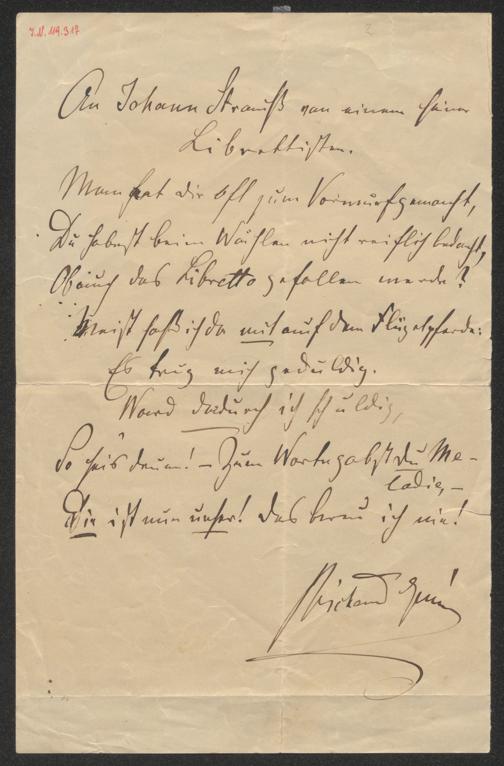 J.N. 119.317
2
An Johann Strauß von einem seiner
Librettisten.
Man hat dir oft zum Vorwurf gemacht,
Du habest beim Wählen nicht reiflich bedacht,
Ob auch das Libretto gefallen werde?
Meist saß ich da mit auf dem Flügelpferde:
Es trug mich geduldig.
Ward dadurch ich schuldig,
So sei's drum! – Zum Wort gabst du Me-
lodie, –
Die ist nun unser! das bereu' ich nie!
Richard Genée